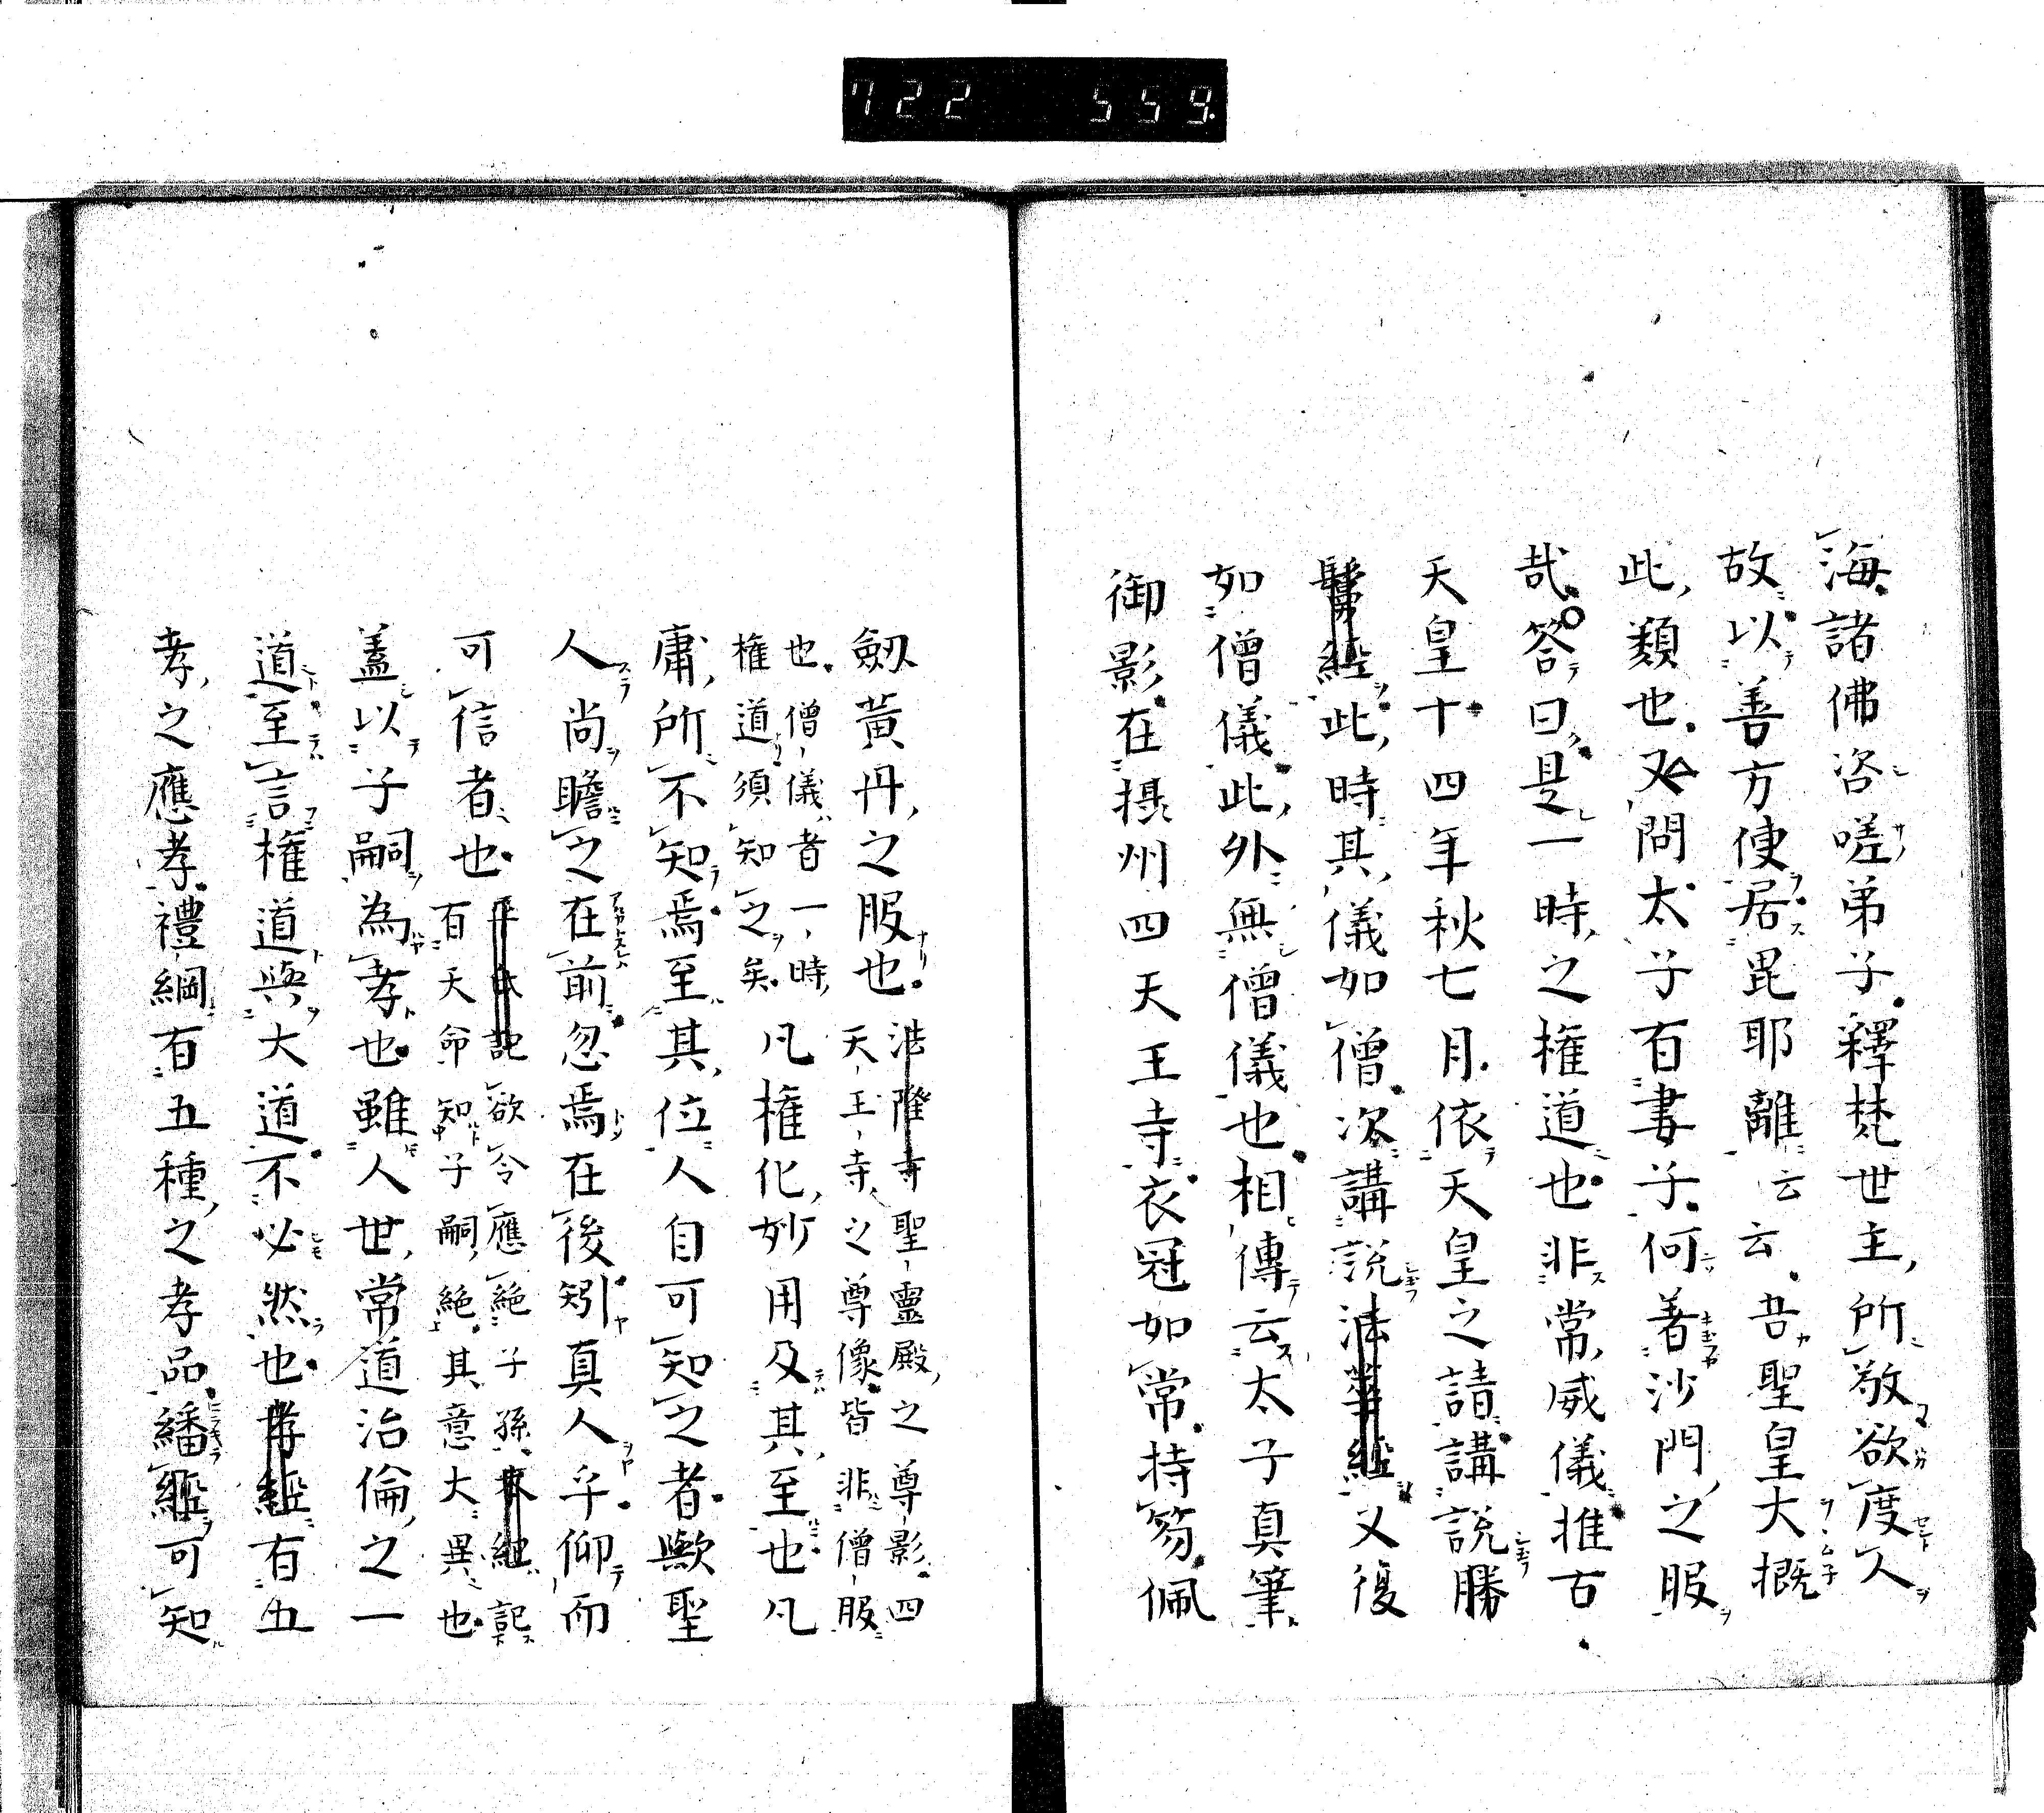 722 559.
海諸佛咨嗟弟子釋梵世主所敬欲度人
故以善方便居毘耶離云云吾聖皇大概
此類也又問太子百妻子何著沙門之服
哉答曰是一時之権道也非常威儀推古
天皇十四年秋七月依天皇之請講説勝
鬘經此時其儀如僧次講説法華經又復
如僧儀此外無僧儀也相傳云太子真筆
御影在摂州四天王寺衣冠如常持笏佩
劔黄丹之服也
法隆寺聖霊殿之尊影四
天王寺之尊像皆非僧服
也僧儀者一時
権道須知之矣
凡権化妙用及其至也凡
庸所不知焉至其位人自可知之者歟聖
人尚瞻之在前忽焉在後矧真人乎仰而
可信者也
平氏記欲令應絶子孫
百天命知子嗣絶其意大異也
蓋以子嗣為孝也雖人世常道治倫之一
道至言権道與大道不必然也孝經有五
孝之應孝禮綱百五種之孝品繙經可知